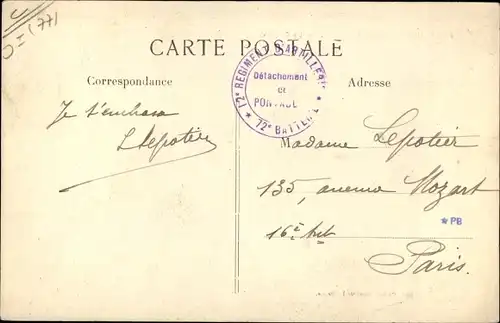 CARTE POSTALE
12e REGIMENT D'ARTILLERIE
Détachement
de
72e BATTERIE
Correspondance
Adresse
Je t'embrasse
L Lepotier
Madame Lepotier
135, avenue Mozart
16e
Paris.
★ PB